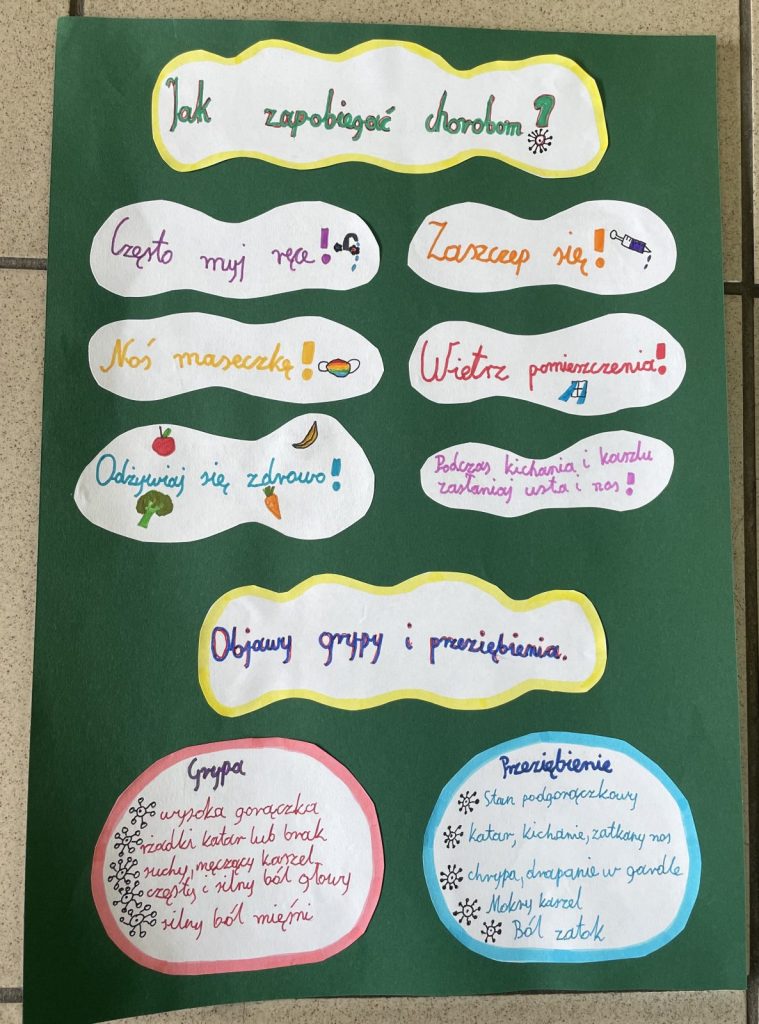 Jak zapobiegać chorobom?
Często myj ręce!
Zaszczep się!
Noś maseczkę!
Wietrz pomieszczenia!
Odżywiaj się zdrowo!
Podczas kichania i kaszlu
zasłaniaj usta i nos!
Objawy grypy i przeziębienia.
Grypa
wysoka gorączka
rzadki katar lub brak
suchy, męczący kaszel
częsty i silny ból głowy
silny ból mięśni
Przeziębienie
Stan podgorączkowy
katar, kichanie, zatkany nos
chrypa, drapanie w gardle
Mokry kaszel
Ból zatok